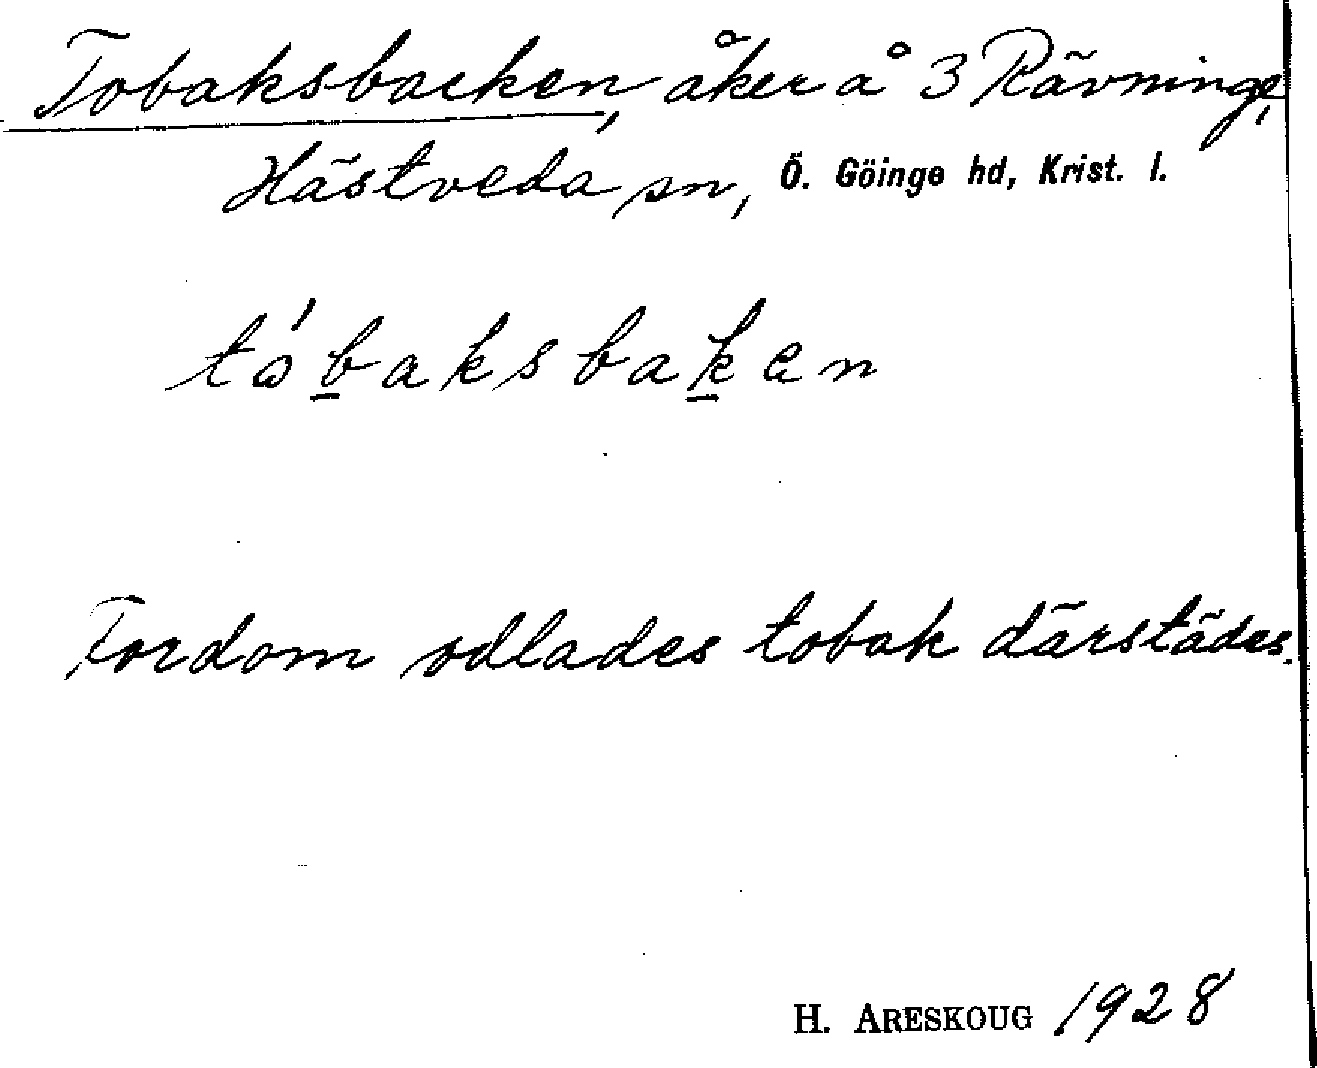 Tobaksbacken, åker å 3 Rävninge,
Hästveda sn, Ö. Göinge hd, Krist. l.
tóbaksbaken
Fordom odlades tobak därstädes.
H. ARESKOUG 1928